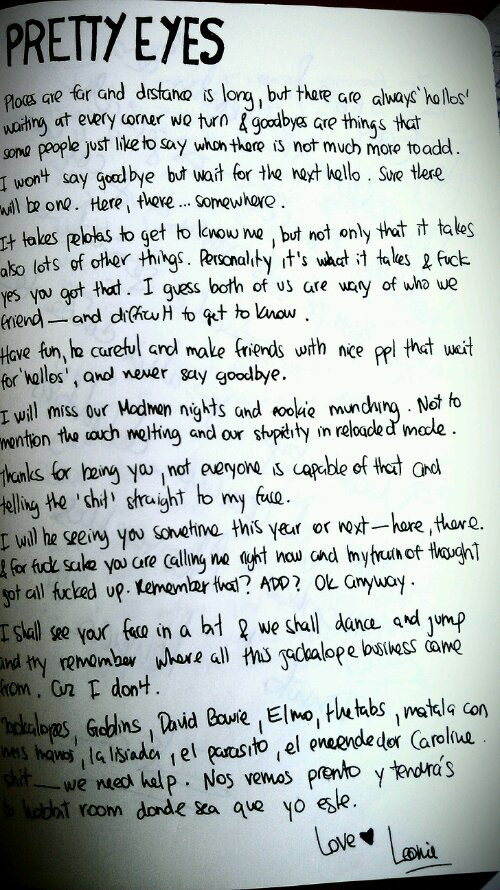 PRETTY EYES
Places are far and distance is long, but there are always 'hellos'
waiting at every corner we turn & goodbyes are things that
some people just like to say when there is not much more to add.
I won't say goodbye but wait for the next hello. Sure there
will be one. Here, there... somewhere.
It takes pelotas to get to know me, but not only that it takes
also lots of other things. Personality it's what it takes & fuck
yes you got that. I guess both of us are wary of who we
friend — and difficult to get to know.
Have fun, be careful and make friends with nice ppl that wait
for 'hellos', and never say goodbye.
I will miss our Madmen nights and cookie munching. Not to
mention the couch melting and our stupitity in reloaded mode.
Thanks for being you, not everyone is capable of that and
telling the 'shit' straight to my face.
I will be seeing you sometime this year or next — here, there.
& for fuck sake you are calling me right now and my train of thought
got all fucked up. Remember that? ADD? Ok anyway.
I shall see your face in a bit & we shall dance and jump
and try remember where all this jackalope business came
from. Cuz I don't.
Jackalopes, Goblins, David Bowie, Elmo, the tabs, matala con
hanos, la lisiada, el parasito, el encendedor Caroline.
shit — we need help. Nos vemos pronto y tendrás
tu hobbit room donde sea que yo este.
Love ♥ Leonie